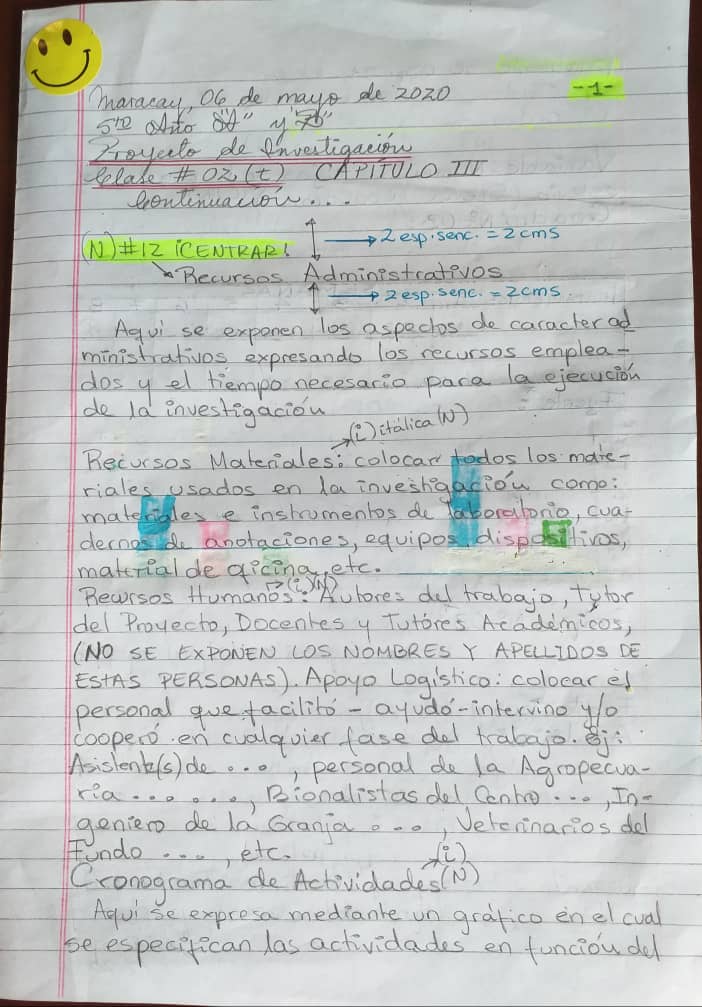 Maracay, 06 de mayo de 2020
-1-
5to Año "A" y "B"
Proyecto de Investigación
Clase # 02 (t) CAPÍTULO III
Continuación...
→ 2 esp. senc. = 2 cms
(N) #12 ¡CENTRAR!
Recursos Administrativos
→ 2 esp. senc. = 2 cms.
Aquí se exponen los aspectos de caracter ad
ministrativos expresando los recursos emplea-
dos y el tiempo necesario para la ejecución
de la investigación
→(i) itálica (N)
Recursos Materiales: colocar todos los mate-
riales usados en la investigación como:
materiales e instrumentos de laboratorio, cua-
dernos de anotaciones, equipos, dispositivos,
material de oficina, etc.
→(i)(N)
Recursos Humanos: Autores del trabajo, tutor
del Proyecto, Docentes y Tutóres Académicos,
(NO SE EXPONEN LOS NOMBRES Y APELLIDOS DE
ESTAS PERSONAS). Apoyo Logístico: colocar el
personal que facilitó - ayudó - intervino y/o
cooperó en cualquier fase del trabajo. Ej:
Asistente(s) de ..., personal de la Agropecua-
ria ......, Bionalistas del Centro ..., In-
geniero de la Granja ..., Veterinarios del
Fundo ..., etc.
→(i)
Cronograma de Actividades (N)
Aquí se expresa mediante un gráfico en el cual
se especifican las actividades en función del